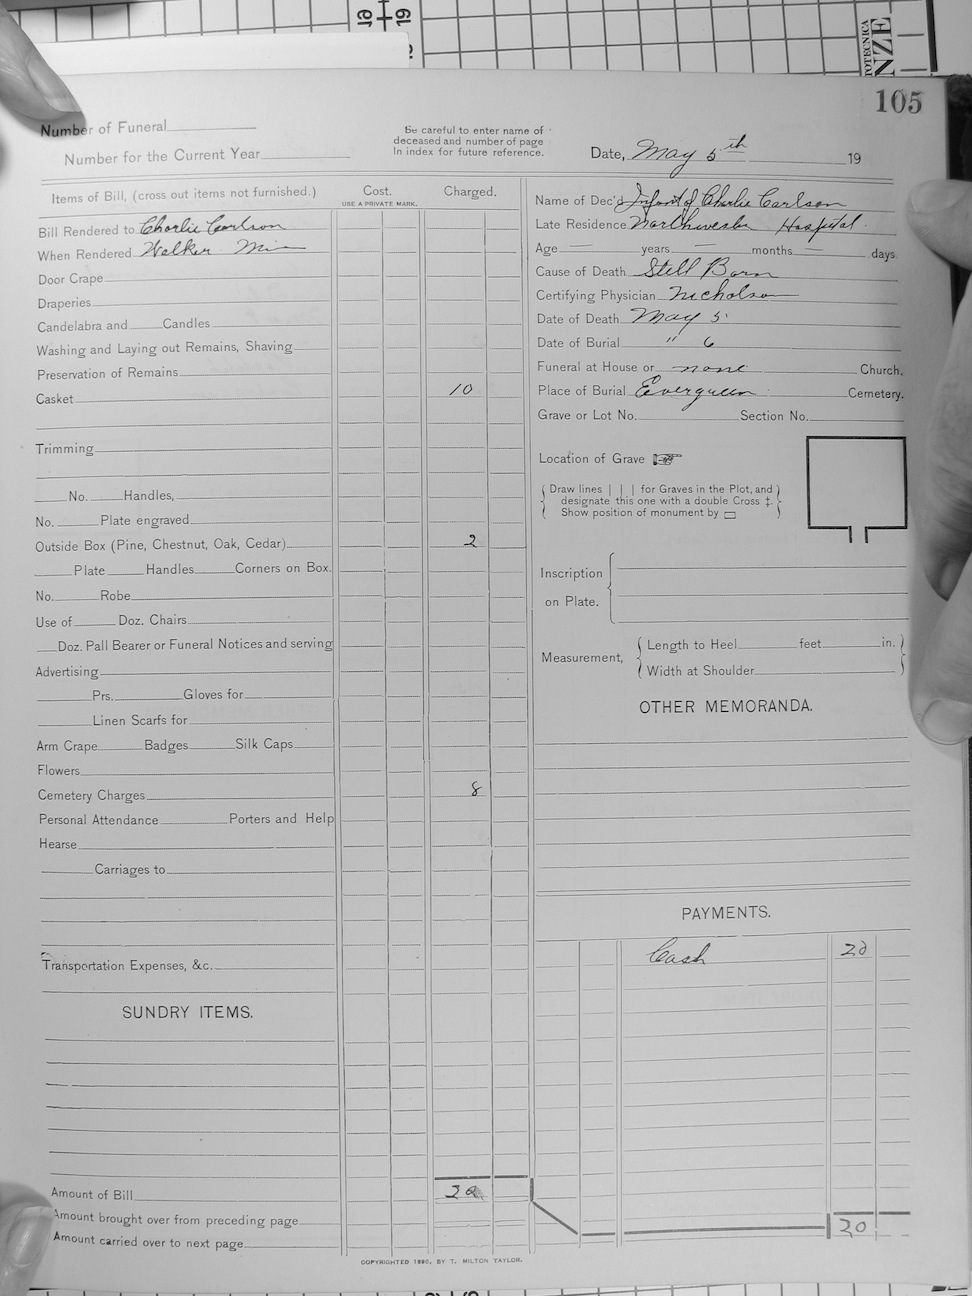 105
Number of Funeral
Number for the Current Year
Be careful to enter name of
deceased and number of page
in index for future reference.
Date, May 5th 19
Items of Bill, (cross out items not furnished.) Cost. Charged.
USE A PRIVATE MARK.
Bill Rendered to Charlie Carlson
When Rendered Walker Min
Door Crape
Draperies
Candelabra and Candles
Washing and Laying out Remains, Shaving
Preservation of Remains
Casket 10
Trimming
No. Handles,
No. Plate engraved
Outside Box (Pine, Chestnut, Oak, Cedar) 2
Plate Handles Corners on Box.
No. Robe
Use of Doz. Chairs
Doz. Pall Bearer or Funeral Notices and serving
Advertising
Prs. Gloves for
Linen Scarfs for
Arm Crape Badges Silk Caps
Flowers
Cemetery Charges 8
Personal Attendance Porters and Help
Hearse
Carriages to
Transportation Expenses, &c.
SUNDRY ITEMS.
Amount of Bill 20
Amount brought over from preceding page
Amount carried over to next page
Name of Dec'd Infant of Charlie Carlson
Late Residence Northwester Hospital
Age — years — months — days.
Cause of Death Still Born
Certifying Physician Nicholson
Date of Death May 5
Date of Burial " 6
Funeral at House or none Church.
Place of Burial Evergreen Cemetery.
Grave or Lot No. Section No.
Location of Grave
Draw lines | | | for Graves in the Plot, and
designate this one with a double Cross ‡.
Show position of monument by ▭
Inscription
on Plate.
Measurement,
Length to Heel feet in.
Width at Shoulder
OTHER MEMORANDA.
PAYMENTS.
Cash 20
20
COPYRIGHTED 1890, BY T. MILTON TAYLOR.